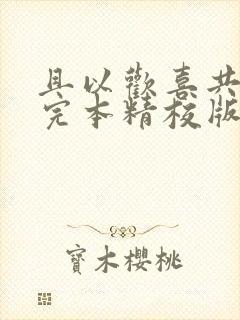 且以歡喜共
完本精校版
寶木櫻桃